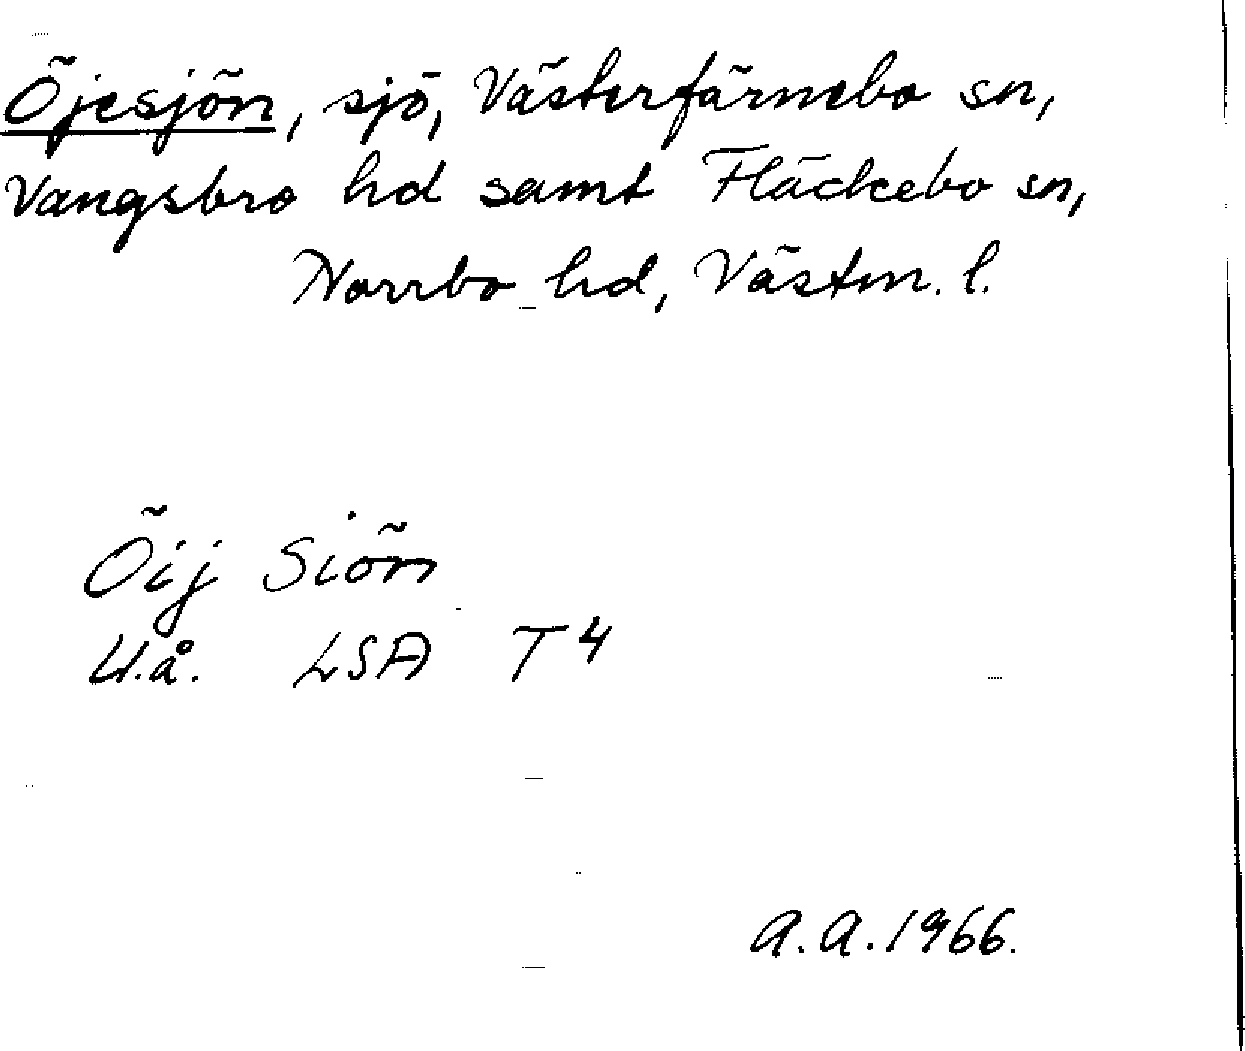 Öjesjön, sjö, Västerfärnebo sn,
Vangsbro hd samt Fläckebo sn,
Norrbo hd, Västm. l.
Öij Siön
U.å. LSA T4
A.A. 1966.